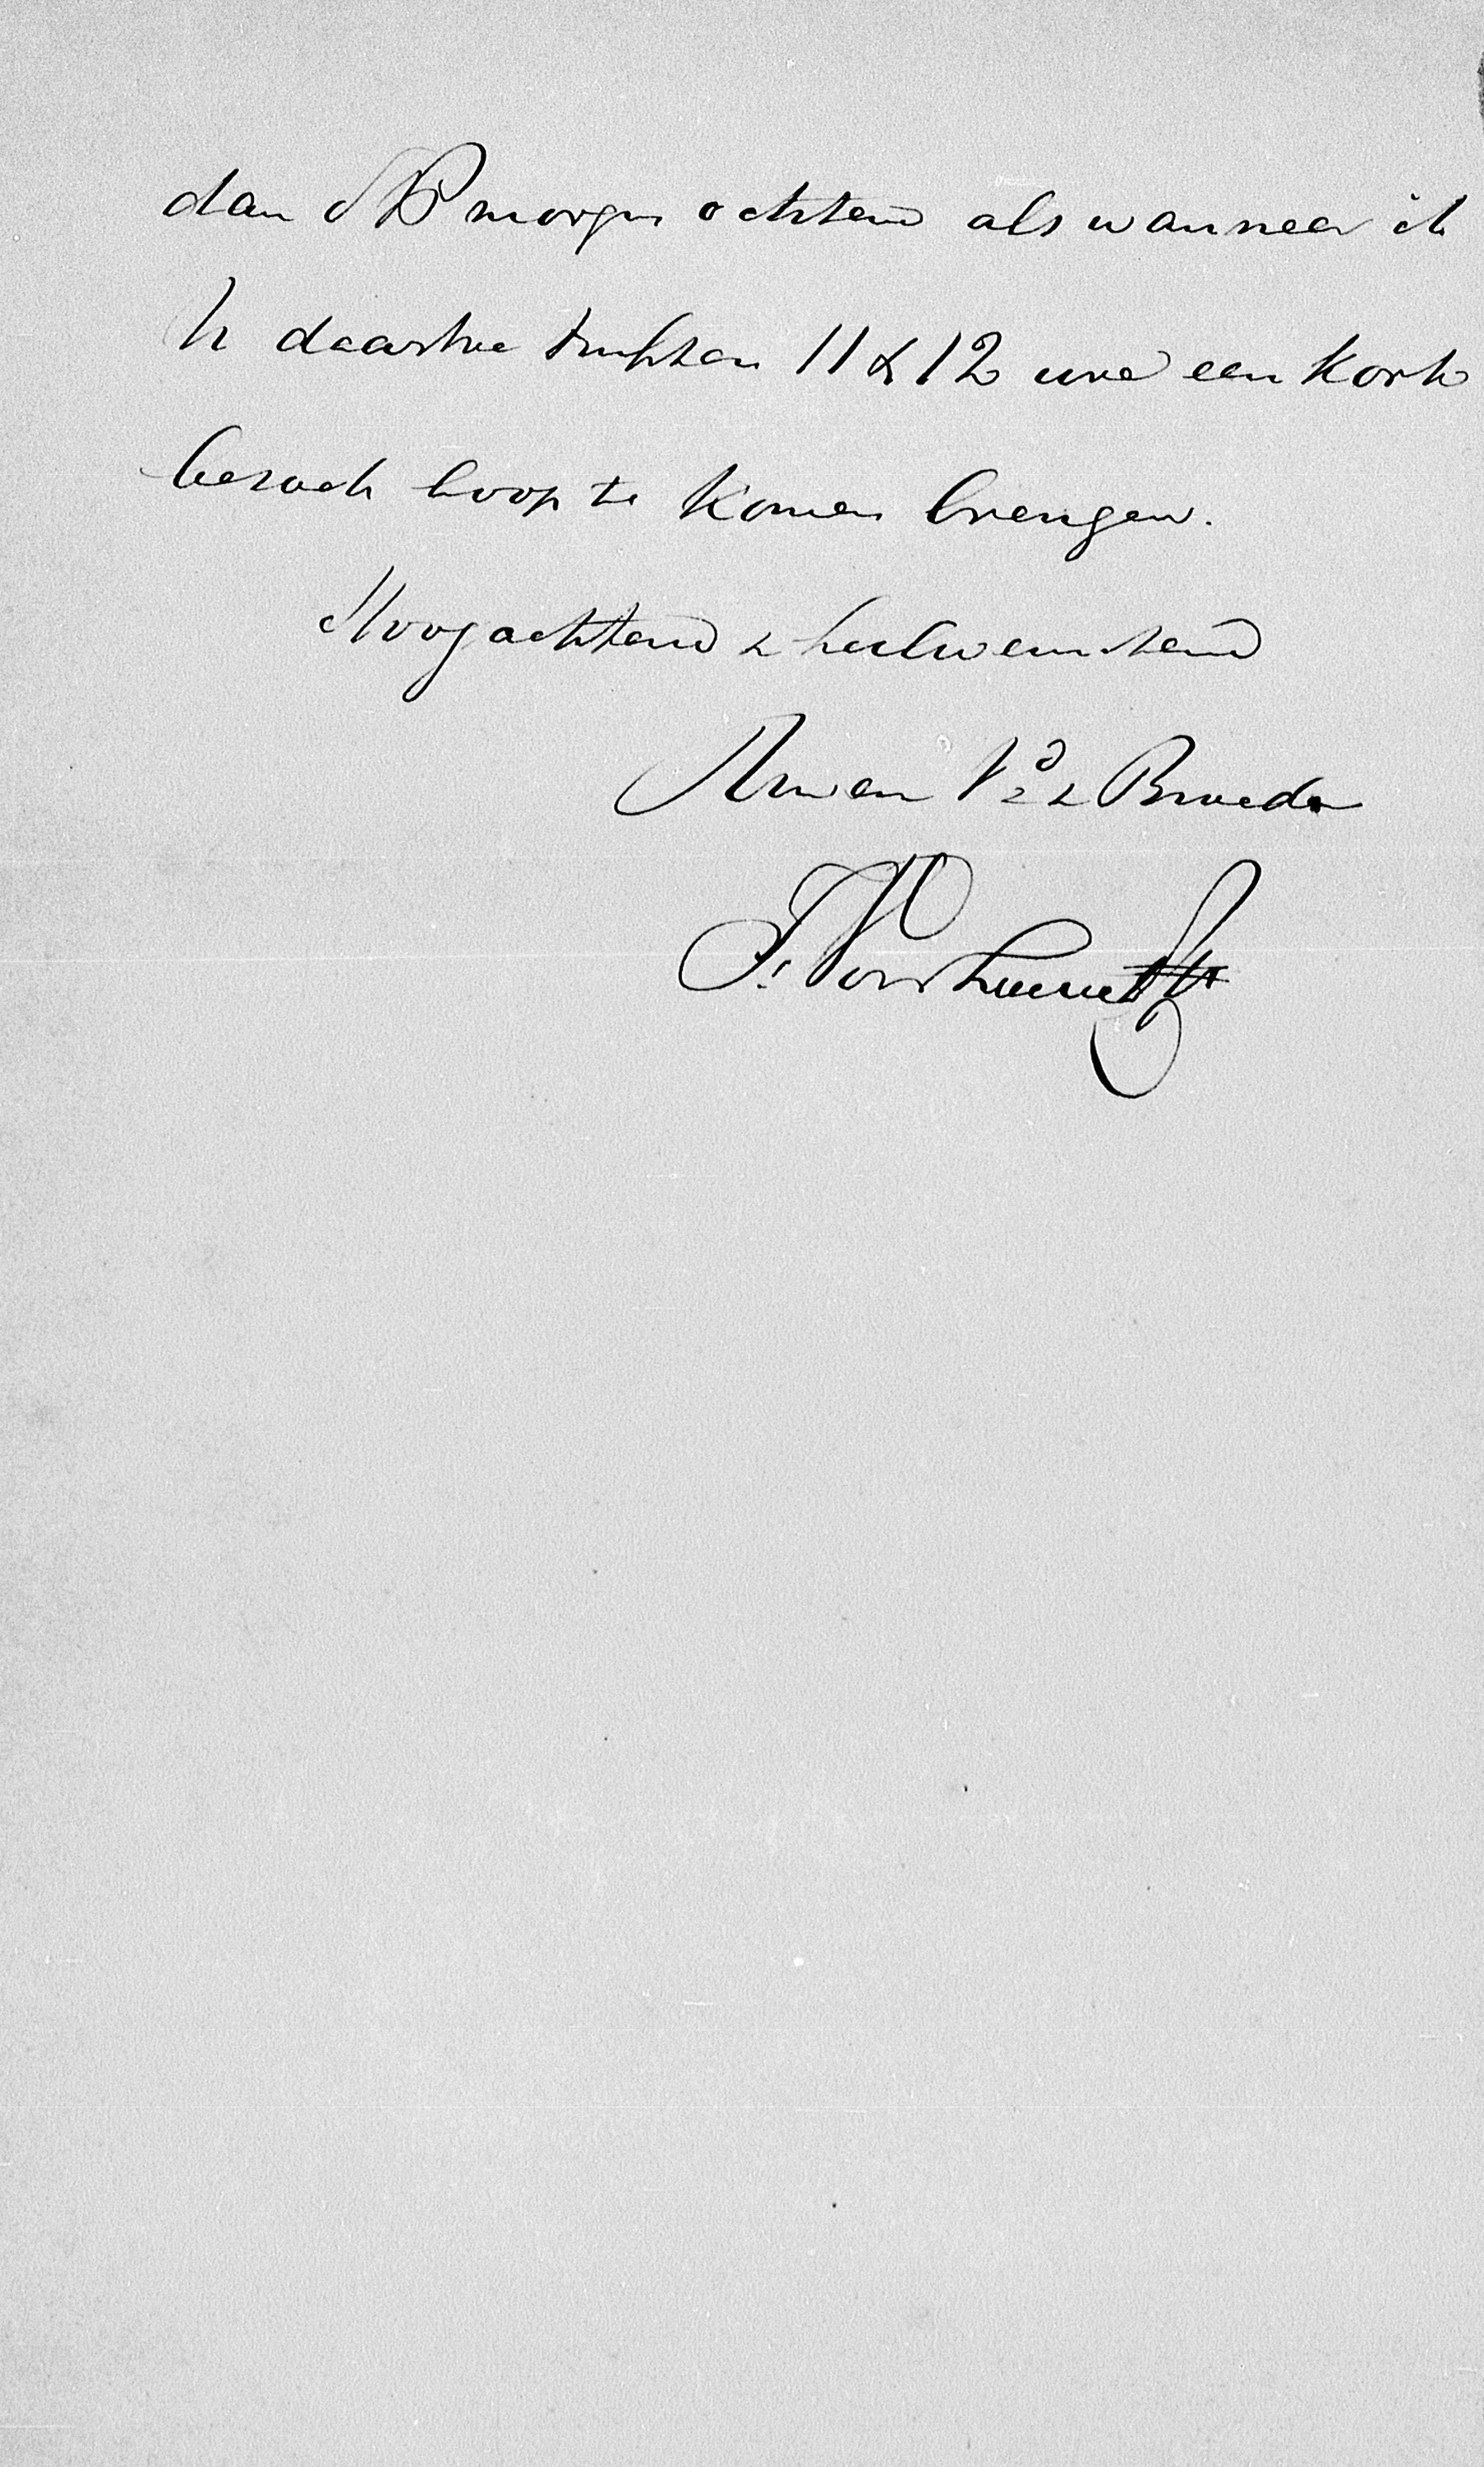 dan DV morgen ochtend als wanneer ik
U daartoe tusschen 11 & 12 ure een kort
bezoek hoop te komen brengen.
Hoogachtend & heilwenschend
Uw en Vd & Broeder
J. Voorhoeve